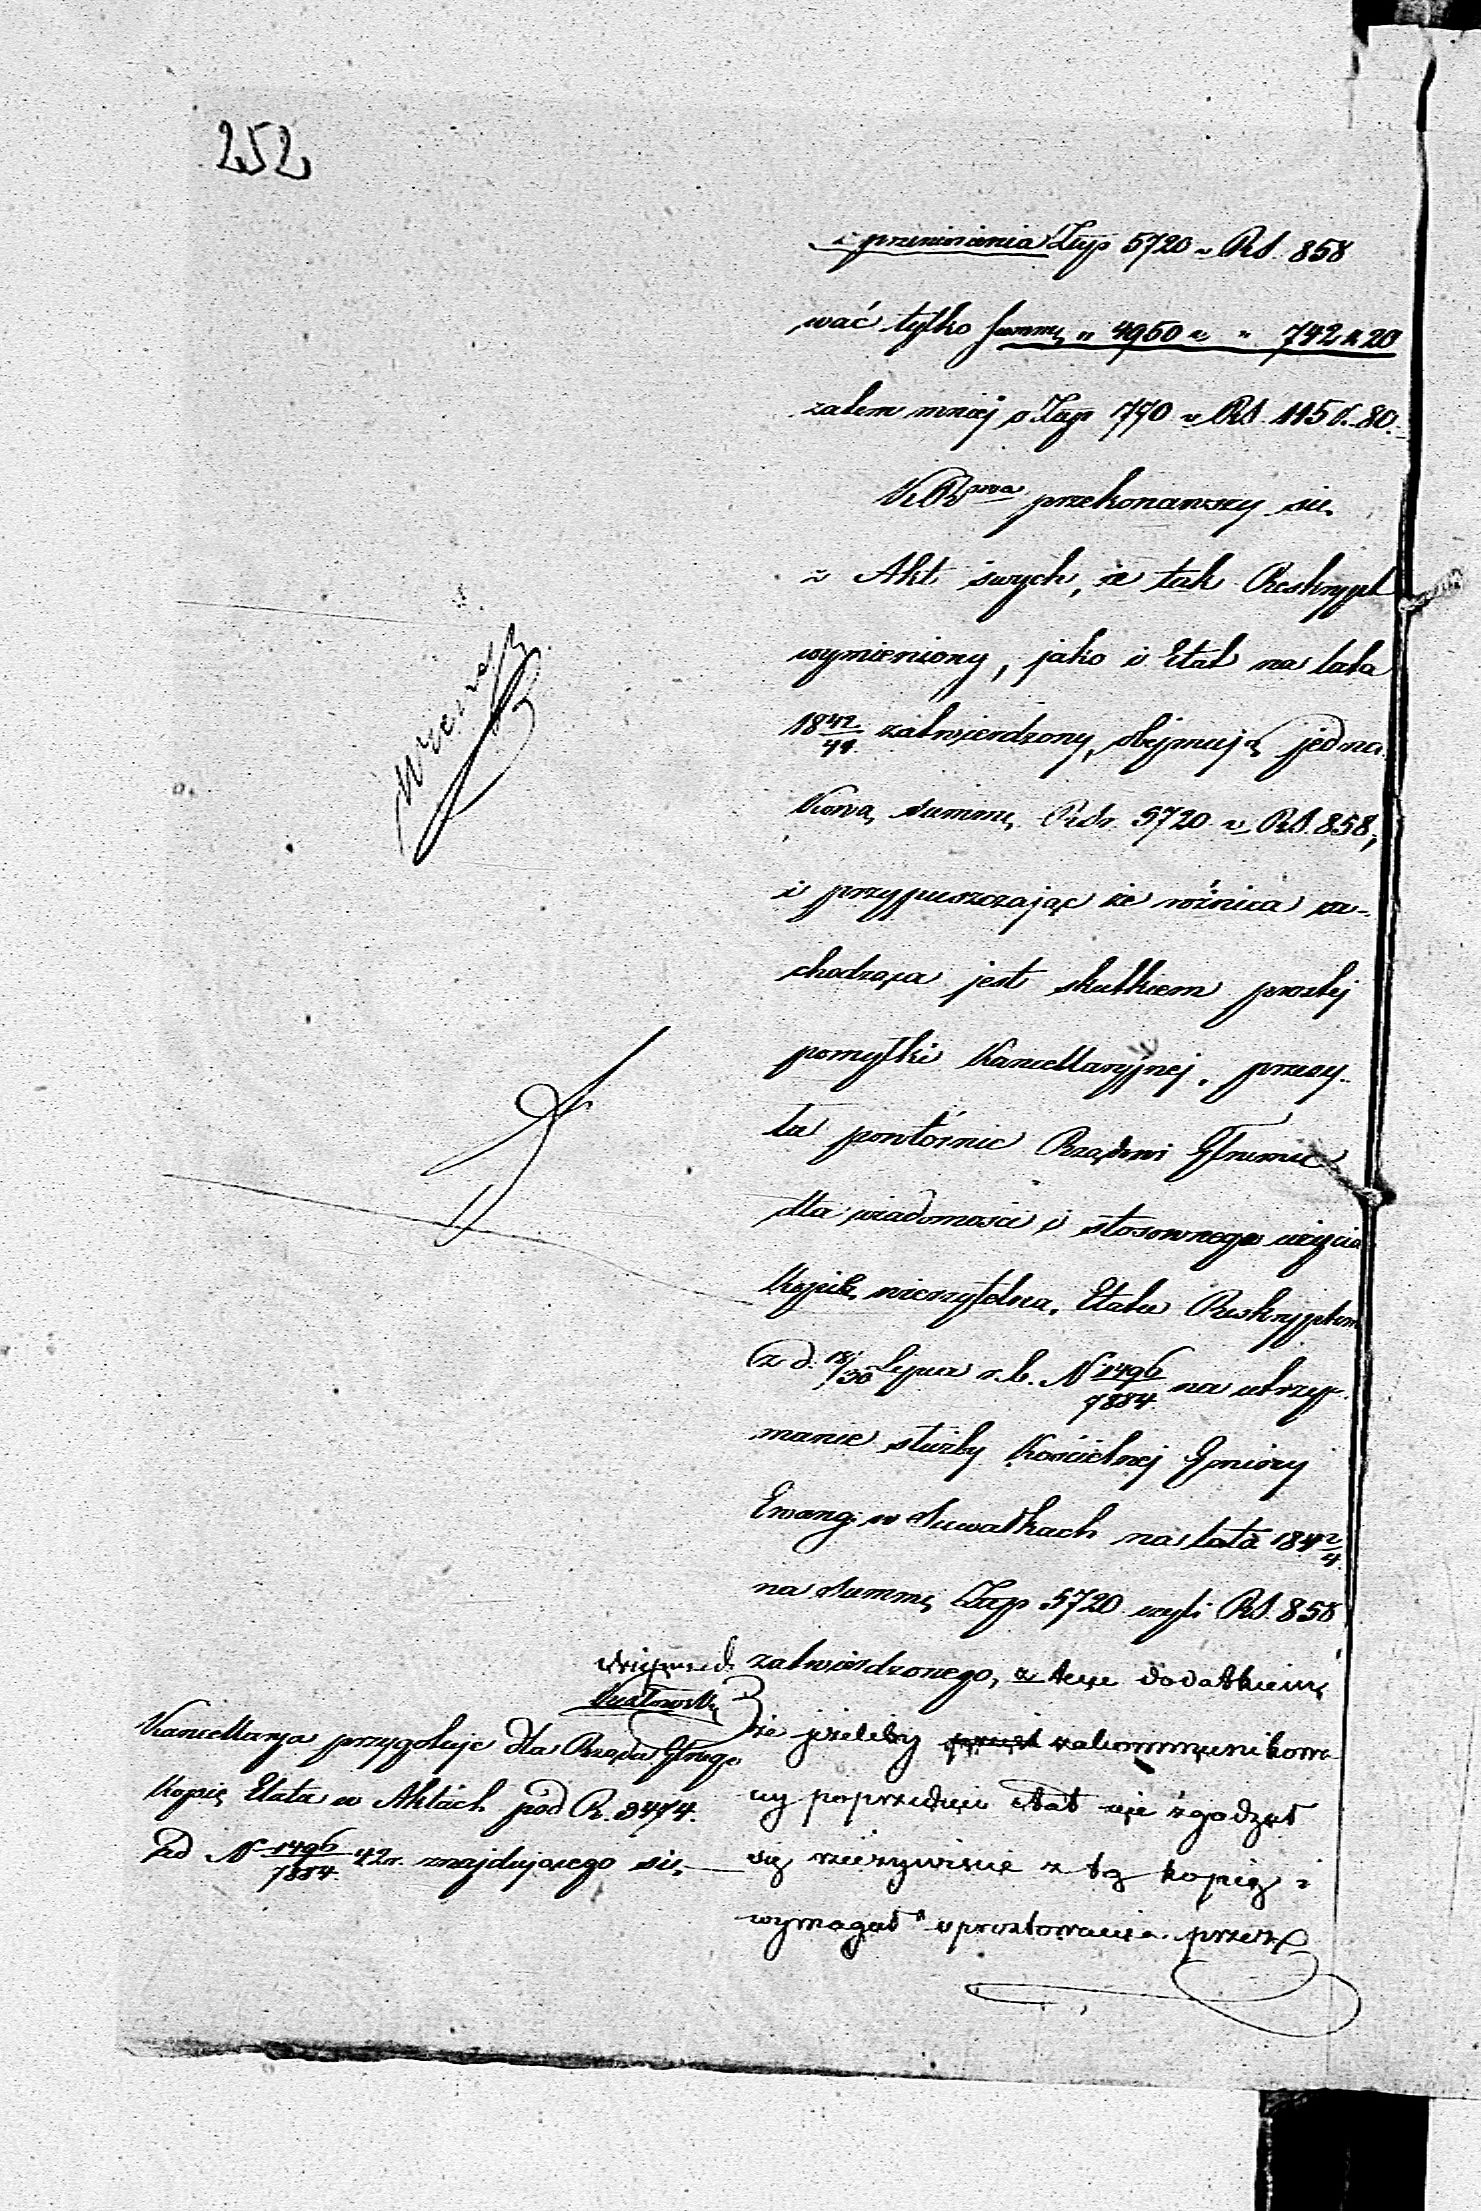 252
i przeniesienia Złp 5720 v RS. 858
wać tylko summę " 4950 v " 742 k 20
zatem mniej o Złp 770 v RS. 115 k. 80.
przekonawszy się
z Akt swych, że tak Reskrypt
wymieniony, jako i Etat na lata
18 42/44 zatwierdzony, obejmują jedna
kową summę 5720 v RS. 858,
i przypuszczając że różnica za-
chodząca jest skutkiem prostej
pomyłki Kancellaryjnej, przesy-
ła powtórnie Rządowi Gbrnmu
dla wiadomości i stosownego użycia
Kopię wierzytelną, Etatu Reskryptem
z d. 18/30 Lipca r. b. N 1496/7884 na utrzy-
manie służby Kościelnej Gminy
Ewang. w Suwałkach na lata 184 2/4
na summę Złp 5720 czyli RS. 858
zatwierdzonego, z tem dodatkiem
że jeżeliby zakommunikowa
ny poprzednio etat nie zgadzał
się rzeczywiście z tą kopią i
wymagał sprostowania przez
Kancellarya przygotuje dla Rządu Gbrnego
Kopię Etatu w Aktach pod R. 9474.
Ad N 1496/7884 42 r. znajdującego się